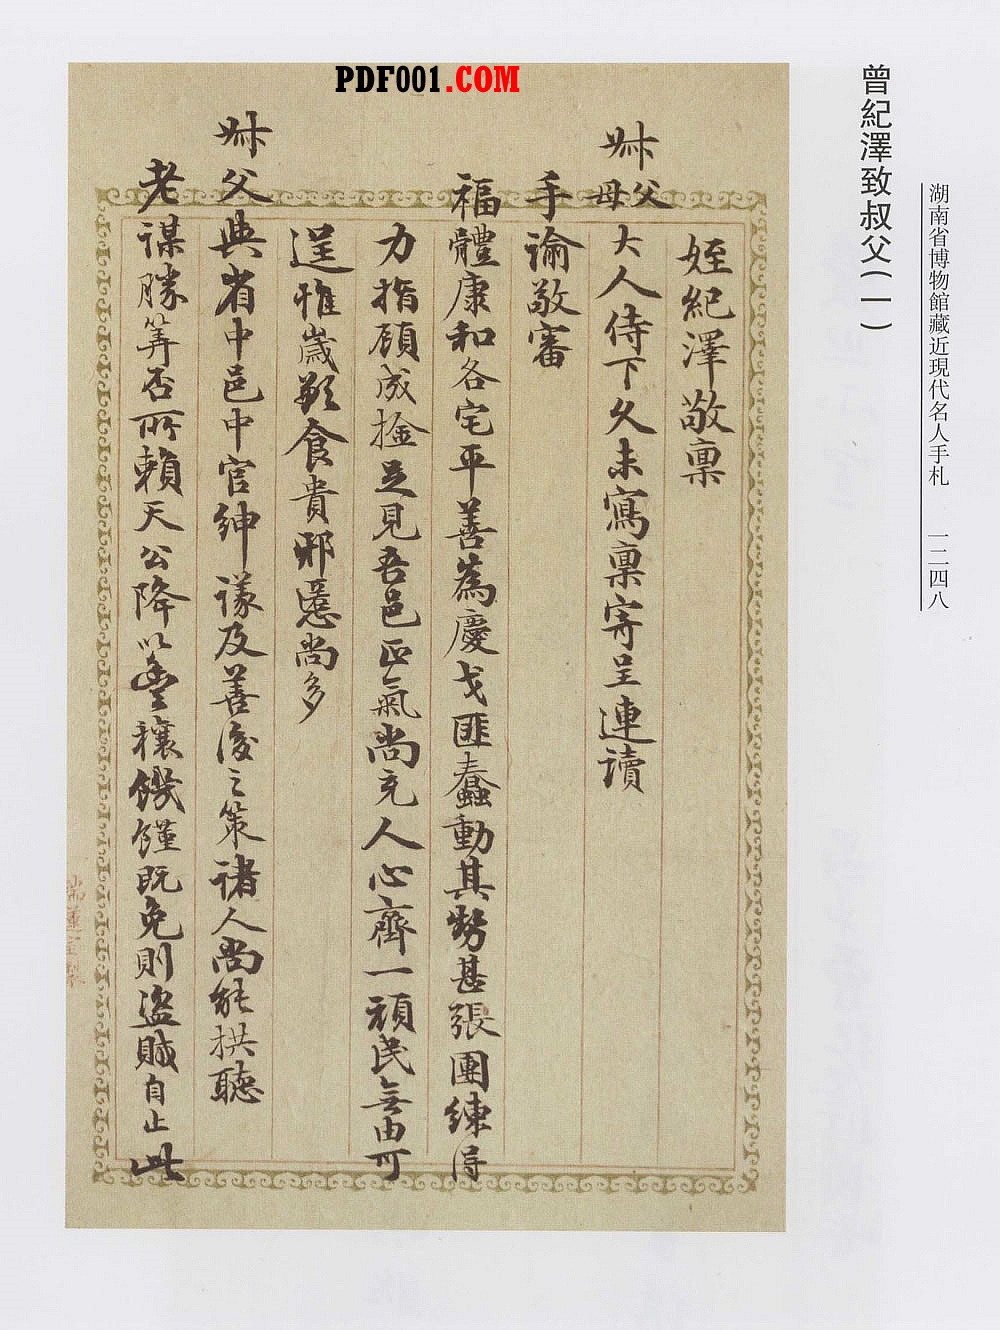 PDF001.COM
湖南省博物館藏近現代名人手札 一二四八
曾紀澤致叔父(一)
姪紀澤敬稟
叔父母
大人侍下久未寫稟寄呈連讀
手諭敬審
福體康和各宅平善為慶戈匪蠢動其勢甚張團練得
力指顧成擒足見吾邑正氣尚充人心齊一頑民無由可
逞惟歲歉食貴邪慝尚多
叔父與省中邑中官紳議及善後之策諸人尚能拱聽
老謀勝算否所賴天公降以豐穰饑饉既免則盜賊自止此